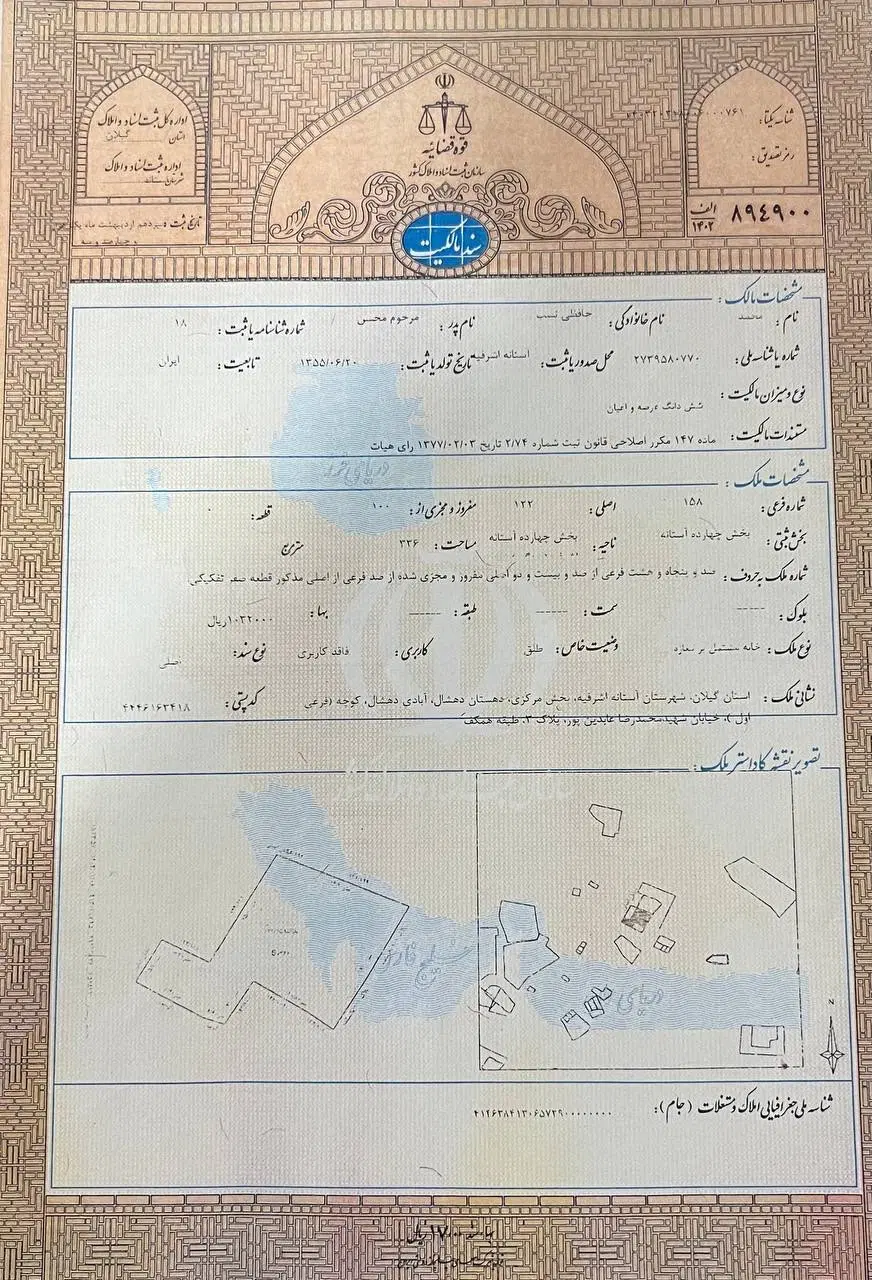 اداره کل ثبت اسناد و املاک
استان گیلان
اداره ثبت اسناد و املاک
شهرستان
قوه قضائیه
سازمان ثبت اسناد و املاک کشور
سند مالکیت
شناسه یکتا:
رمز تصدیق:
۸۹۴۹۰۰ الف ۱۴۰۲
تاریخ ثبت: سیزدهم اردیبهشت ماه یک
و چهارصد و سه
مشخصات مالک:
نام: محمد نام خانوادگی: حافظی نسب نام پدر: مرحوم محسن شماره شناسنامه یا ثبت: ۱۸
شماره یا شناسه ملی: ۲۷۳۹۵۸۰۷۷۰ محل صدور یا ثبت: آستانه اشرفیه تاریخ تولد یا ثبت: ۱۳۵۵/۰۶/۲۰ تابعیت: ایران
نوع و میزان مالکیت: شش دانگ عرصه و اعیان
مستندات مالکیت: ماده ۱۴۷ مکرر اصلاحی قانون ثبت شماره ۲/۷۴ تاریخ ۱۳۷۷/۰۲/۰۳ رای هیات
دریای خزر
مشخصات ملک:
شماره فرعی: ۱۵۸ اصلی: ۱۲۲ مفروز و مجزی از: ۱۰۰ قطعه: ۰
بخش ثبتی: بخش چهارده آستانه ناحیه: بخش چهارده آستانه مساحت: ۳۳۶ مترمربع
شماره ملک به حروف: صد و پنجاه و هشت فرعی از صد و بیست و دو اصلی مفروز و مجزی شده از صد فرعی از اصلی مذکور قطعه صفر تفکیکی
بلوک: ----- سمت: ------ طبقه: ------ بها: ۱۰۳۲۰۰۰ ریال
نوع ملک: خانه مشتمل بر مغازه وضعیت خاص: طلق کاربری: فاقد کاربری نوع سند: اصلی
نشانی ملک: استان گیلان، شهرستان آستانه اشرفیه، بخش مرکزی، دهستان دهشال، آبادی دهشال، کوچه (فرعی کدپستی: ۴۴۴۶۱۶۳۴۱۸
اول )، خیابان شهید محمدرضا عابدین پور، پلاک ۳، طبقه همکف
تصویر نقشه کاداستر ملک:
خلیج فارس
دریای
N
شناسه ملی جغرافیایی املاک و مستغلات (جام): ۴۱۲۶۳۸۴۱۳۰۶۵۷۲۹۰۰۰۰۰۰۰۰۰